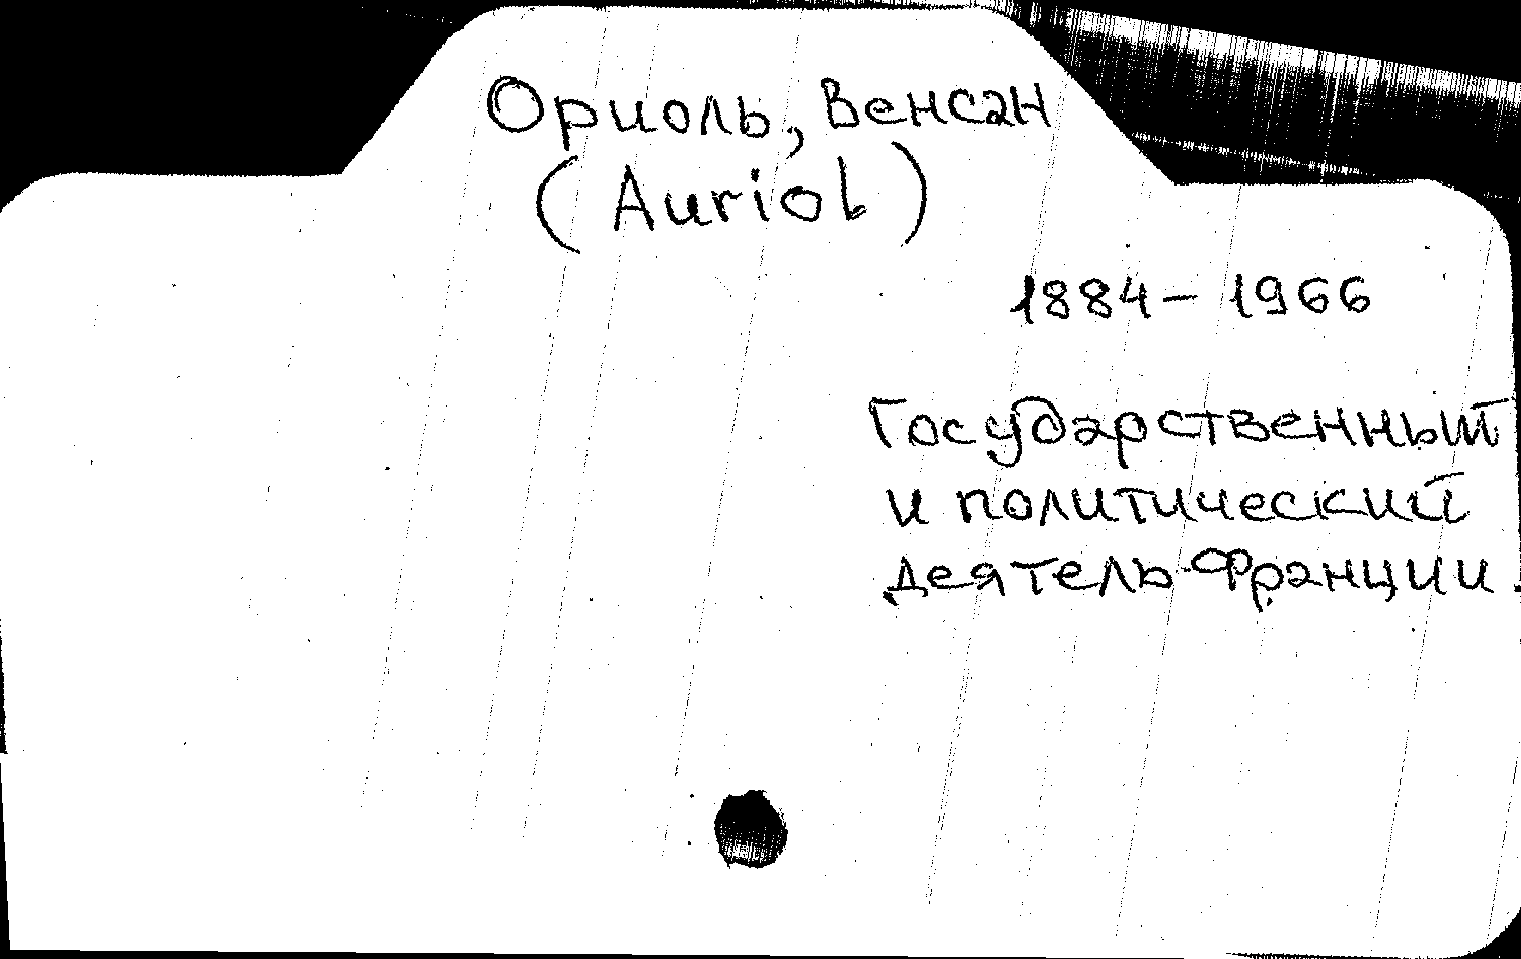 Ориоль, Венсан
(Auriol)
1884 – 1966
Государственный
и политический
деятель Франции.